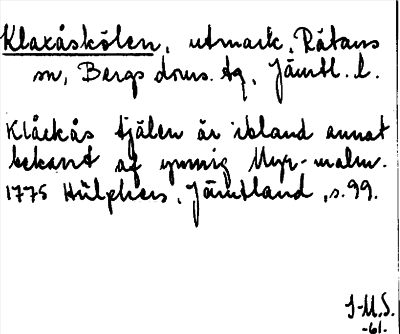 Klaxåskölen, utmark, Rätans
sn, Bergs doms. tg, Jämtl. l.
Klåckås tjälen är ibland annat
bekant af ymnig Myr-malm.
1775 Hülphers, Jämtland, s. 99.
J-M.S.
-61.